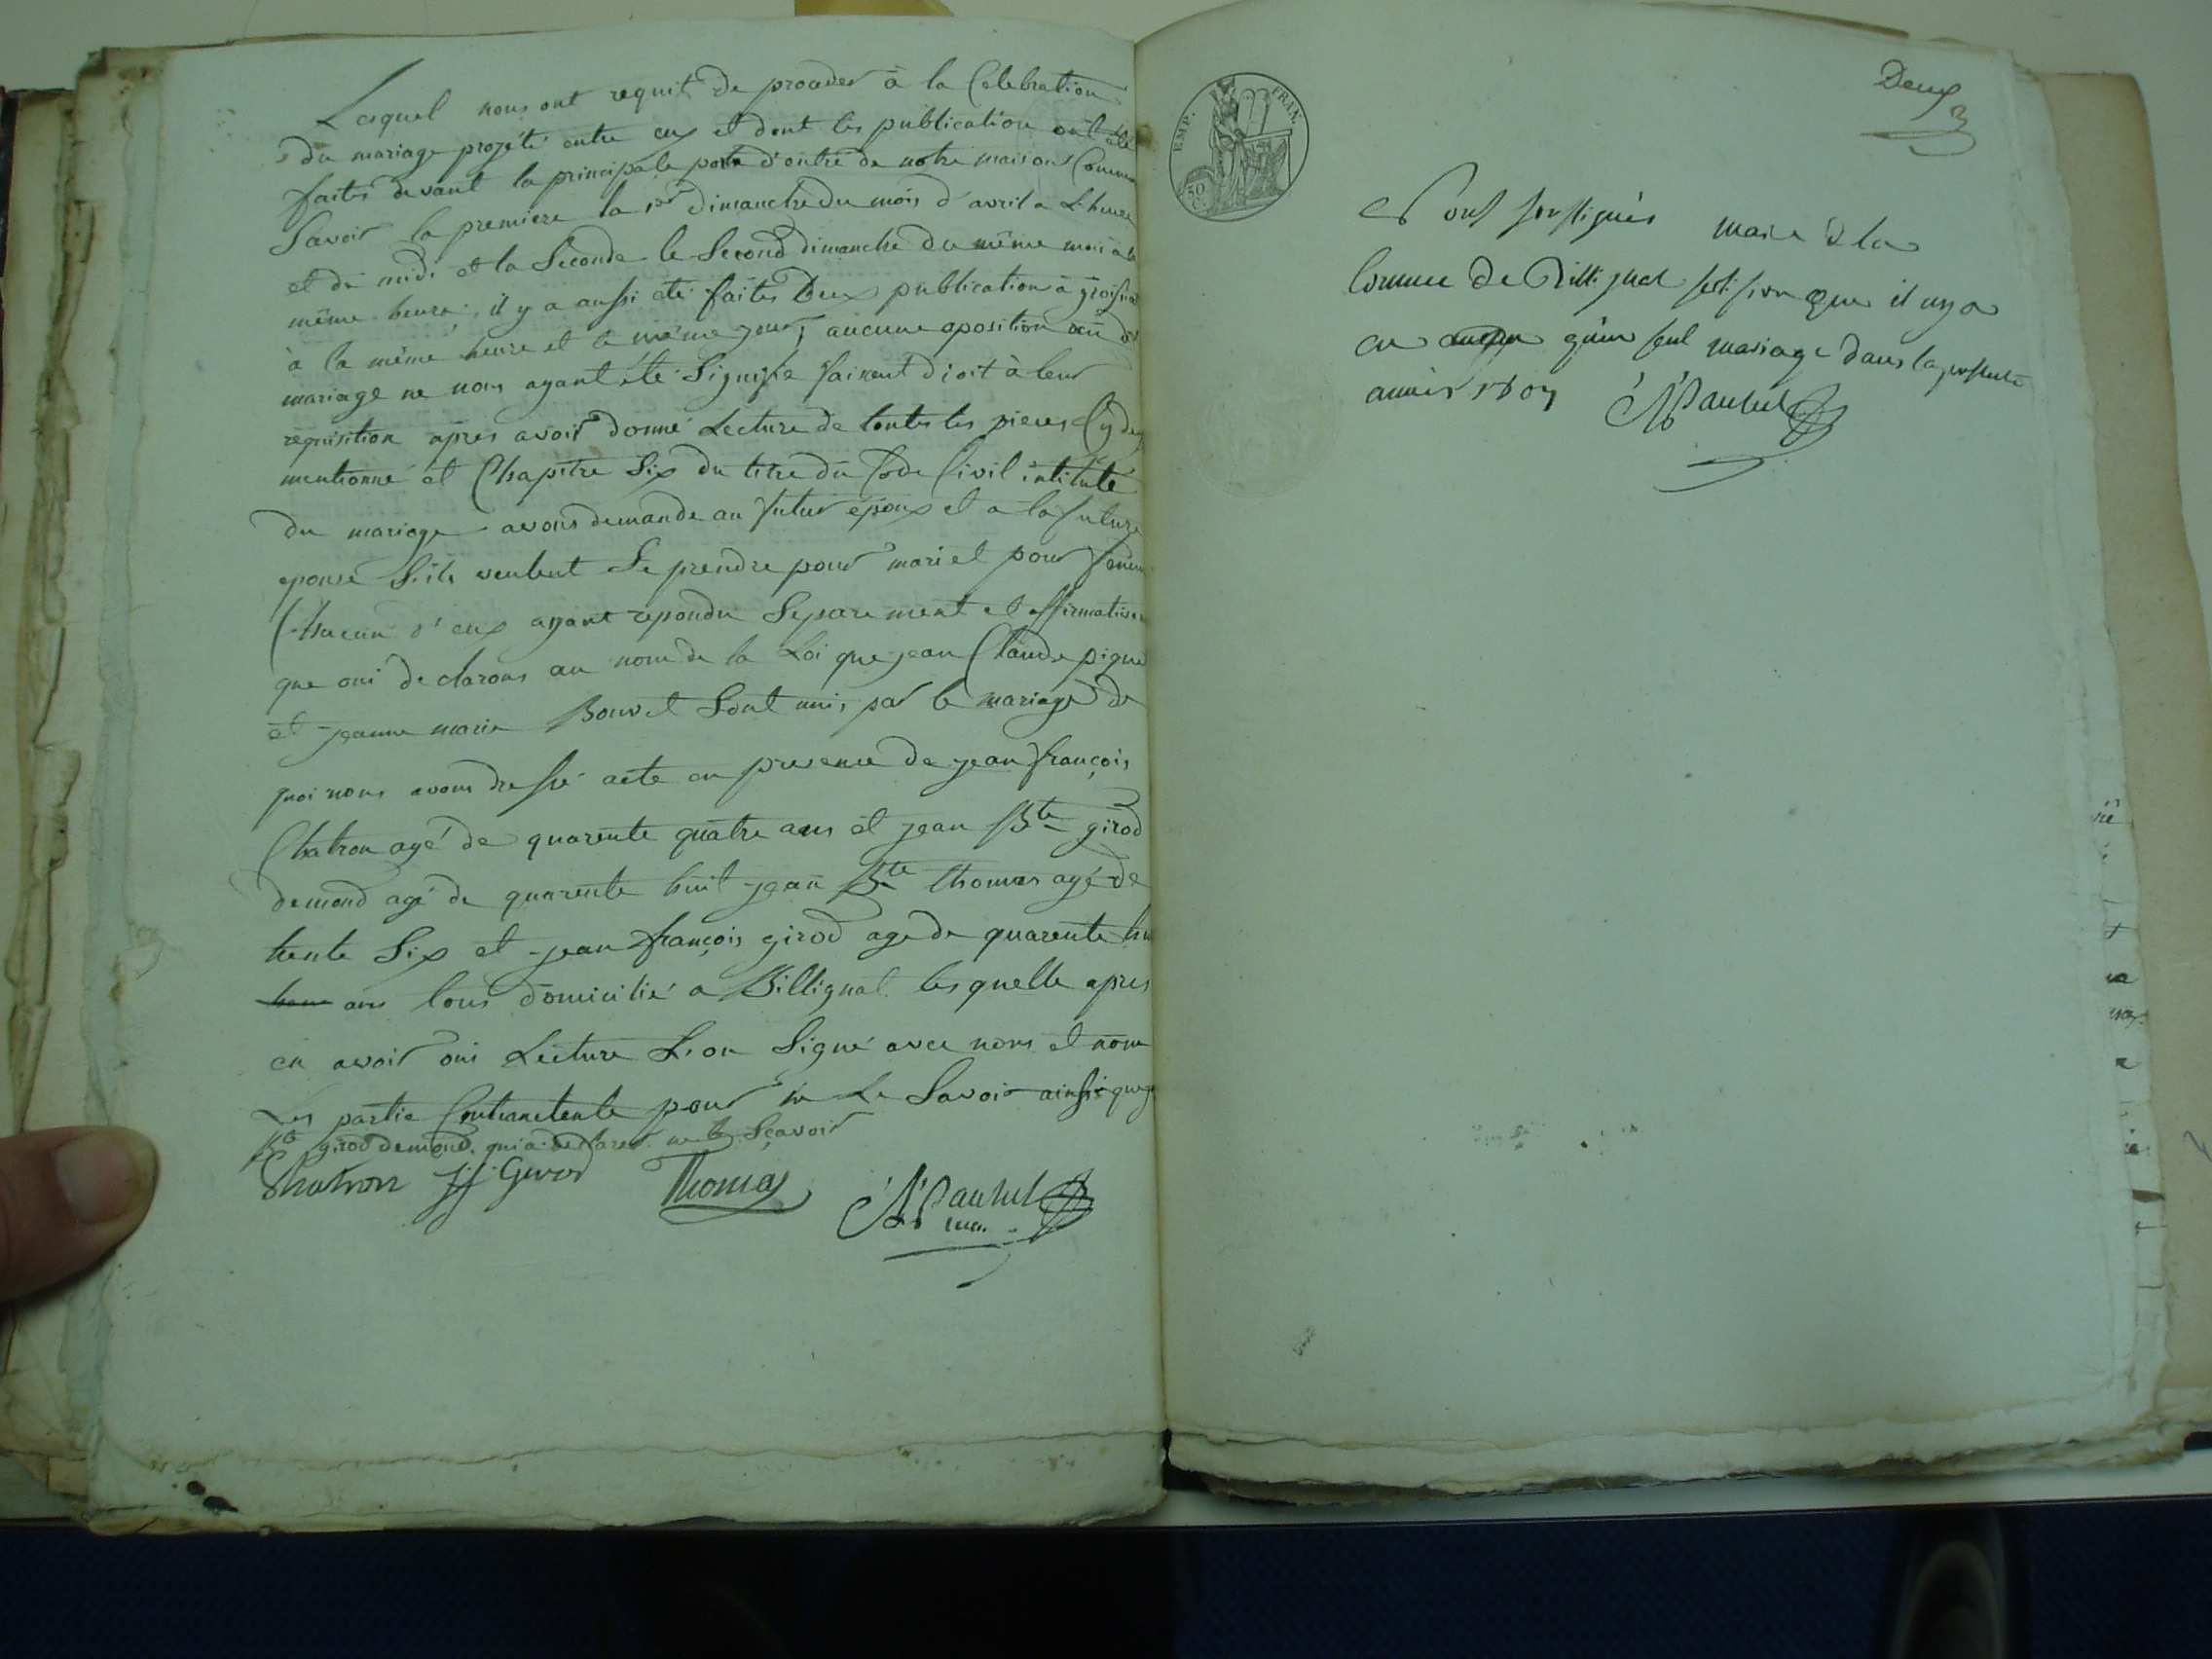 Lesquel nous ont requit de proceder à la Celebration
du mariage projété entre eux et dont les publication ont été
faites devant la principale porte d'entré de notre maison Commu
Savoir la premiere la 1er dimanche du mois d'avril a L'heure
et de midi et la Seconde le Second dimanche du même mois à la
même heure, il y a aussi été faites Deux publication à groissia
à la même heure et le même jour, aucune oposition au d
mariage ne nous ayant été Signifié faisant droit à leur
requisition après avoir donné Lecture de toutes les pieces Cy de
mentionné et Chapitre Six du titre du Code Civil intitulé
du mariage avons demande au futur époux et a la future
epouse S'ils veulent Se prendre pour mari et pour femm
Chacun d'eux ayant repondu Separement et affirmative
que oui declarons au nom de la Loi que jean Claude pigne
et jeanne marie Bouvet Sont unis par le mariage de
quoi nous avons dressé acte en presence de jean françois
Chatron agé de quarente quatre ans et jean Bte girod
demond agé de quarente huit jean Bte thomas agé de
trente Six et jean françois girod age de quarente hu
ans tous domicilié a Billignat lesquelle apres
en avoir oui Lecture L'on Signé avec nous et nom
Les partie Contractente pour ne Le Savoir ainsi que j
Bte girod demond qui a declarer ne le Sçavoir
Chatron jf Girod Thomas
Deux
2
EMP. FRAN.
50 C.
sousignés maire d la
Comune de Billignat que il ny a
eu qu'un seul mariage dans la presente
année 1807